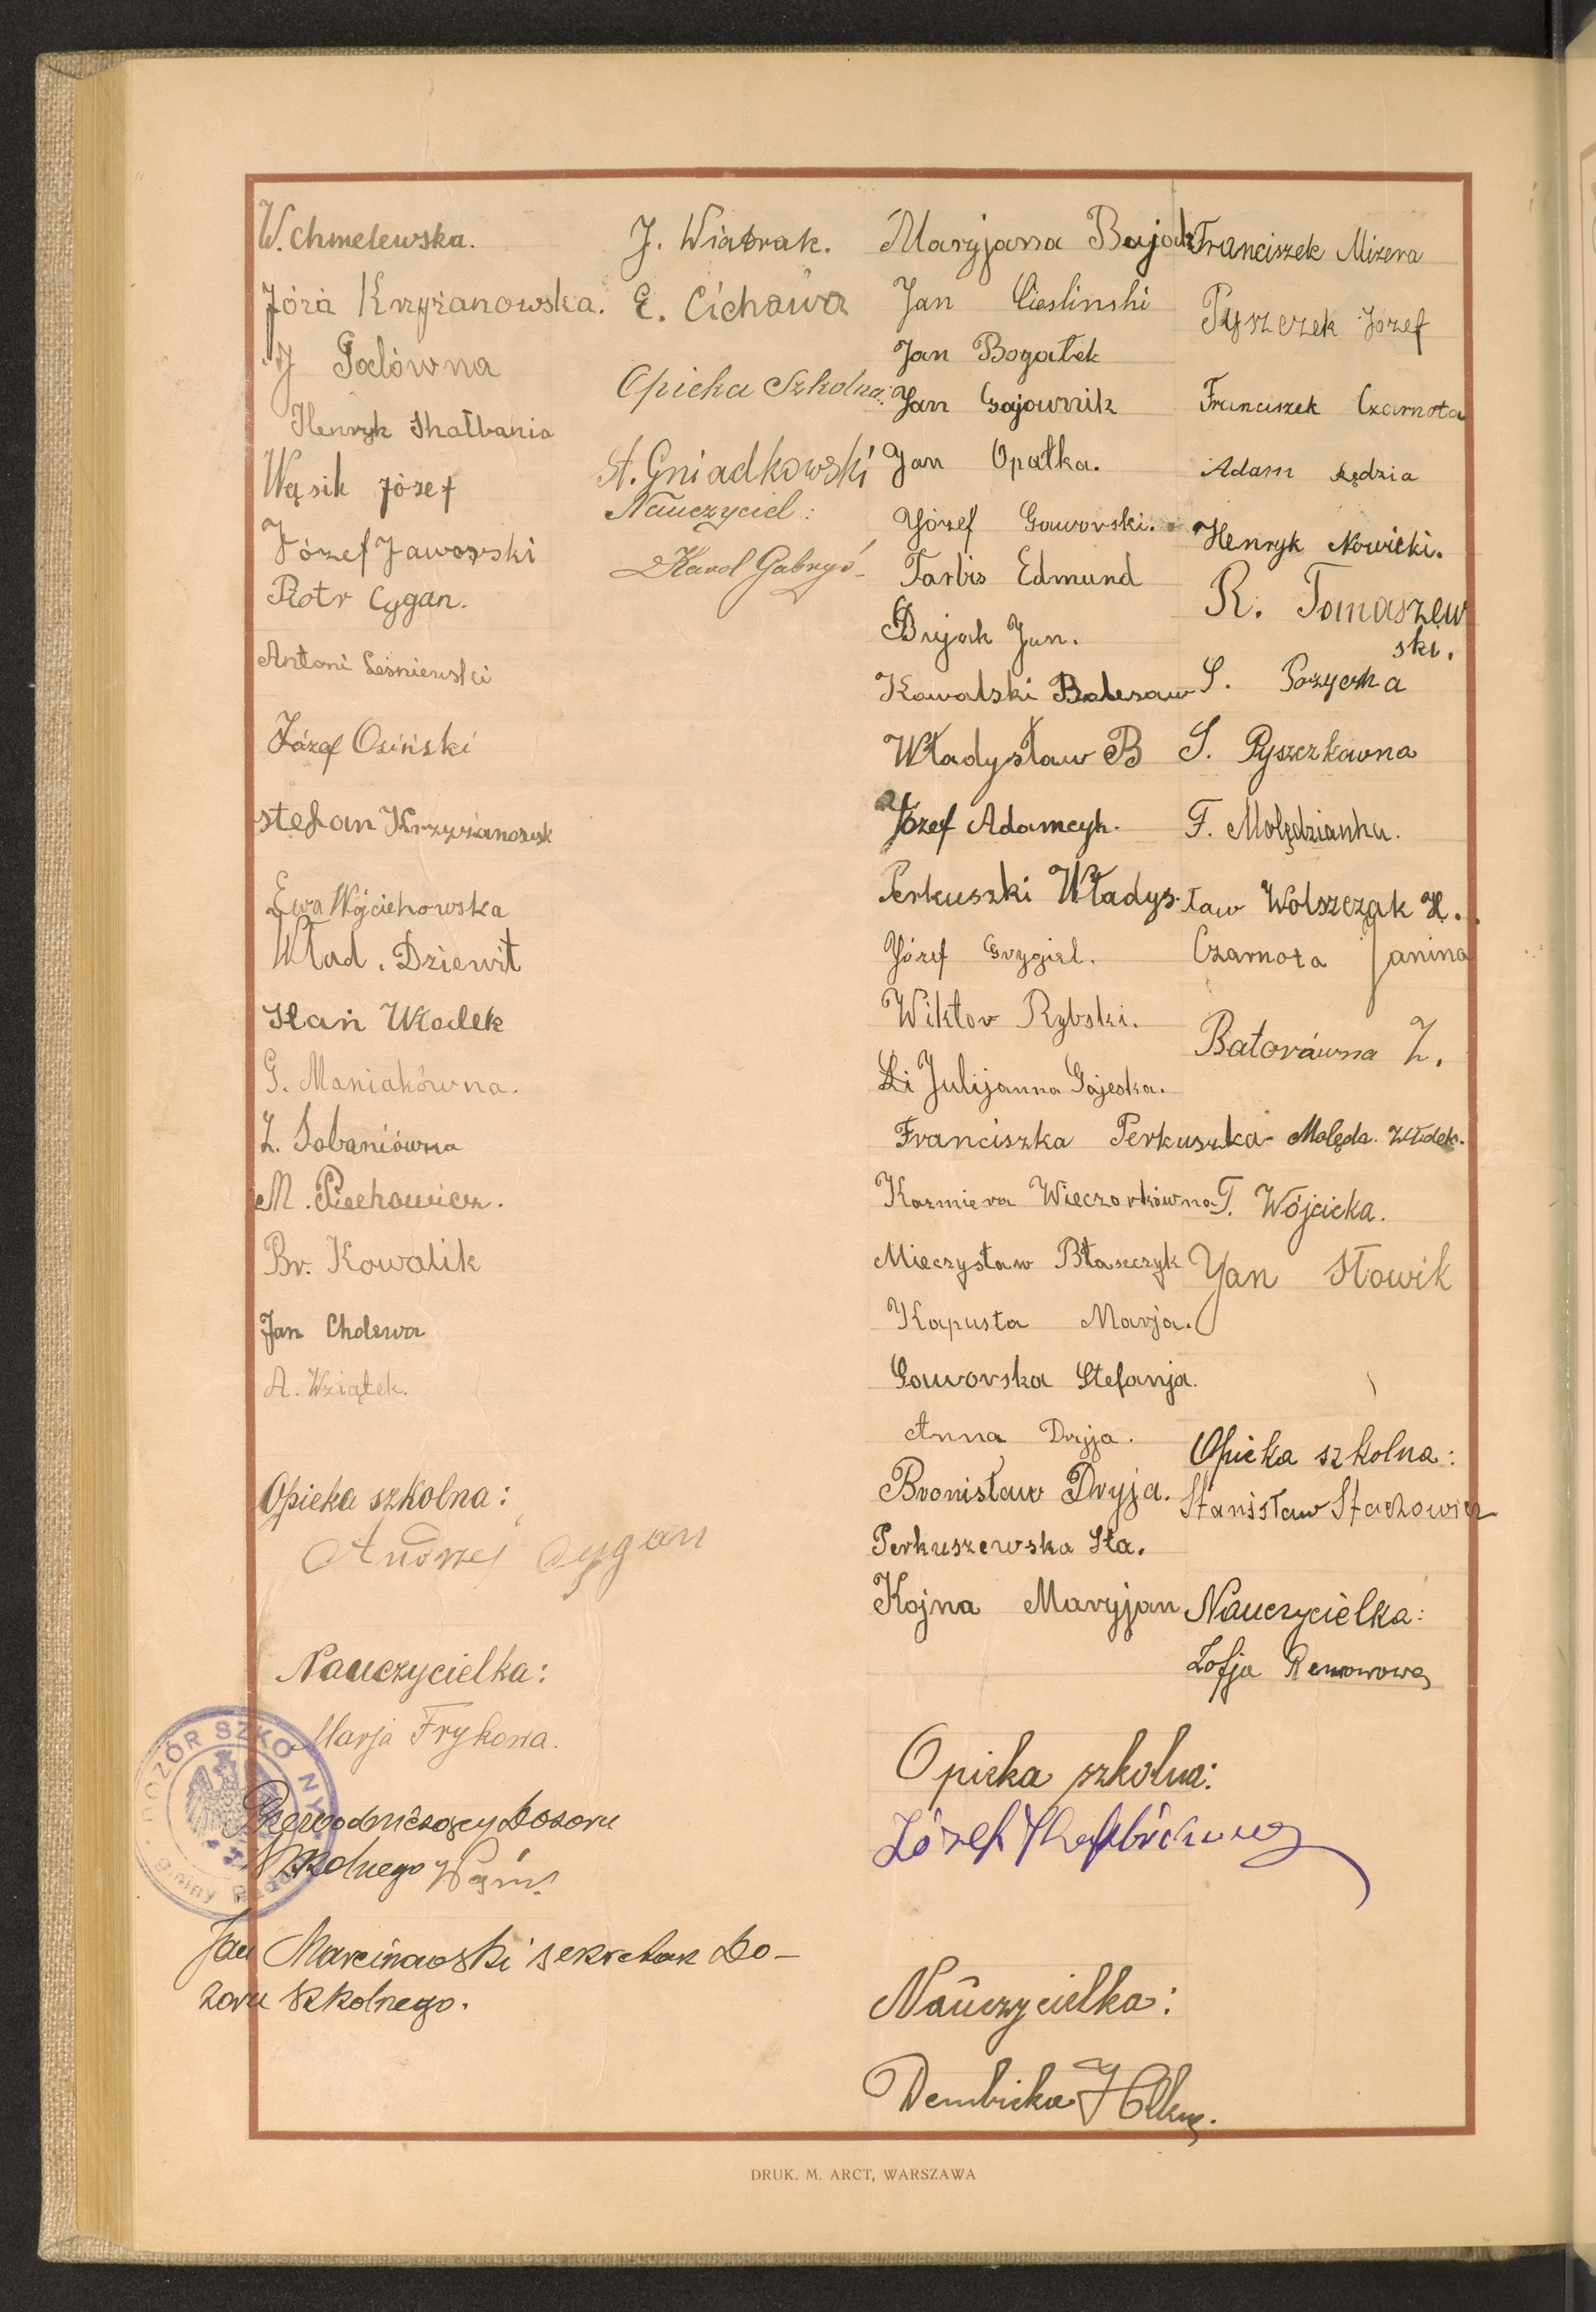 W. Chmelewska.
Józia Krzyżanowska.
J Galówna
Henryk Skałbania
Wąsik Józef
Józef Jaworski
Piotr Cygan.
Antoni Leśniewski
Józef Osiński
Stefan Krzyżanowsk
Ewa Wojciehowska
Wład. Dziewit
Stań Włodek
G. Maniakówna.
Z. Sobaniówna
M. Piechowicz.
Br. Kowalik
Jan Cholewa
A. Wziątek.
Opieka szkolna:
Andrzej Cygan
Nauczycielka:
Marja Frykowa.
DOZÓR SZKOLNY
Gminy
Przewodniczący Dozoru
Szkolnego
Jan Marcinowski sekretarz Do-
zoru Szkolnego.
J. Wiatrak.
E. Cichawa
Opieka Szkolna:
St. Gniadkowski
Nauczyciel:
Karol Gabryś
Maryjanna Bajod
Jan Cieslinski
Jan Bogatek
Jan Gajownik
Jan Opatka.
Józef Gaworski.
Tarbis Edmund
Bryjak Jan.
Kowalski Bolesaw
Władysław B
Józef Adamcyk.
Perkuszki Władysław
Józef Grygiel.
Wiktor Rybski.
Li Julijanna Gajeska.
Franciszka Perkuszka
Kazmiera Wieczorkówna
Mieczysław Błaszczyk
Kapusta Marja.
Gaworska Stefanja.
Anna Dryja.
Bronisław Dryja.
Perkuszewska Sta.
Kojna Maryjan
Opieka szkolna:
Józef
Nauczycielka:
Dembicka
Franciszek Mizera
Pyszczek Józef
Franciszek Czarnota
Adam Kędzia
Henryk Nowicki.
R. Tomaszew
ski.
S. Pozycka
S. Pyszczkówna
F. Molędzianka.
Wolszczak H.
Czarnota Janina
Batorówna Z.
Molęda. Włdek.
T. Wójcicka.
Jan Słowik
Opieka szkolna:
Stanisław Stachowicz
Nauczycielka:
Zofja
DRUK. M. ARCT, WARSZAWA